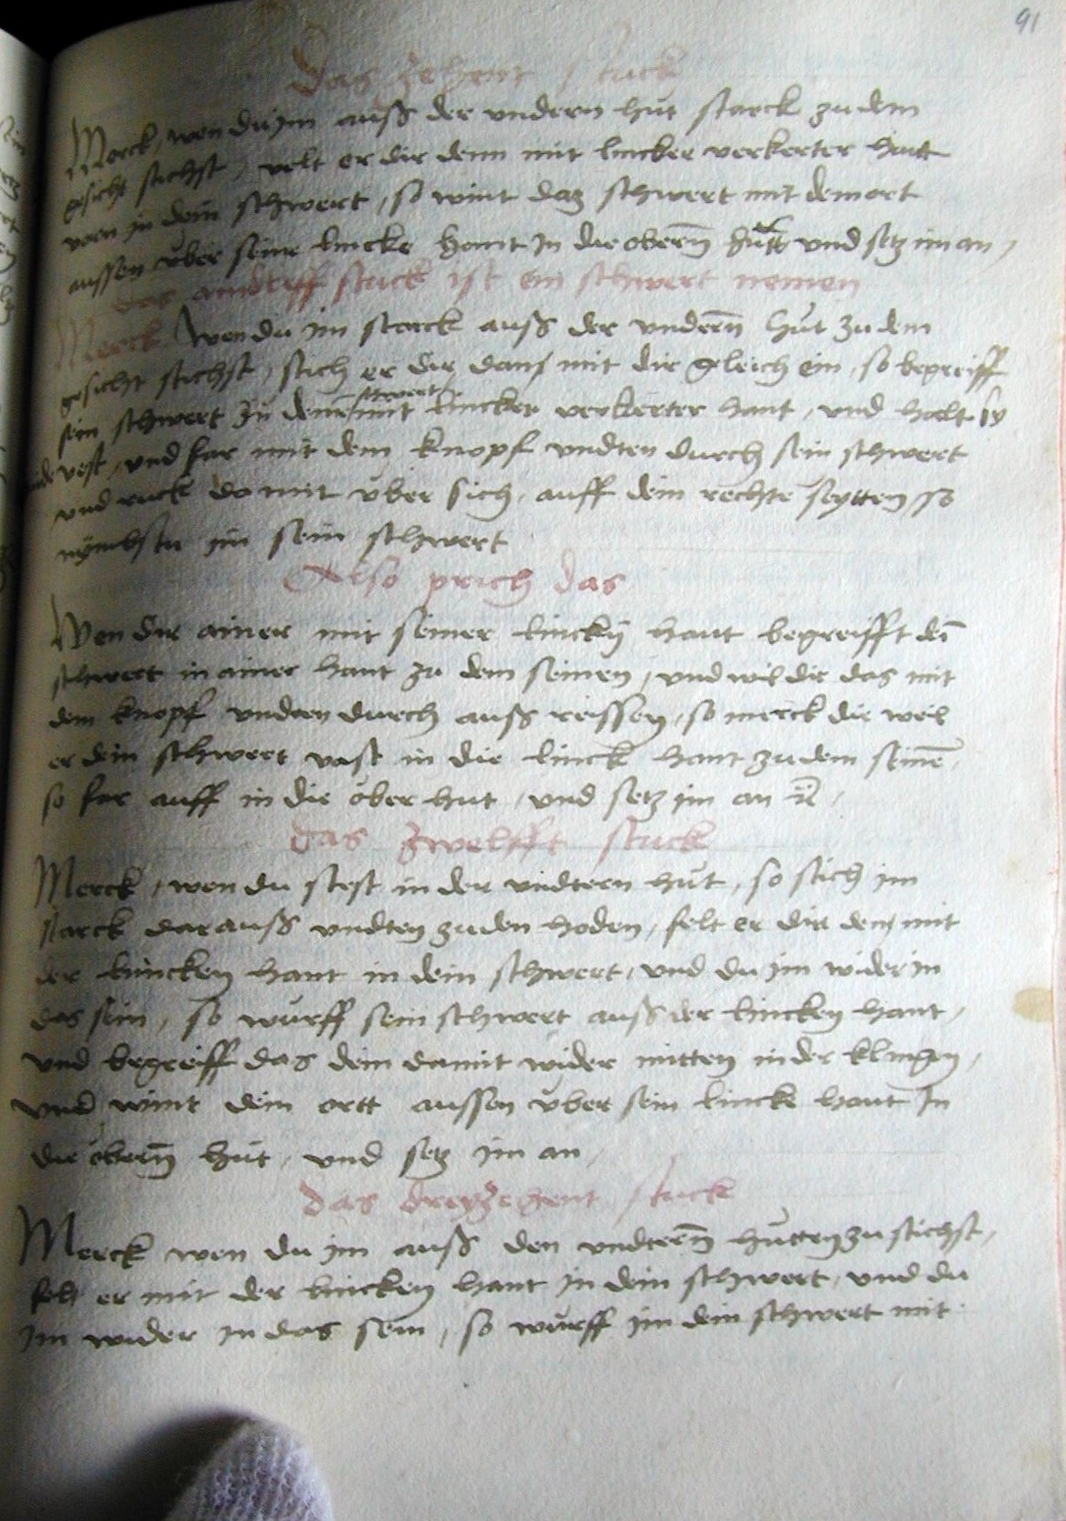 91
Das zehent stuck
Merck, wen du im auß der undern hut starck zu dem
gesicht stichst, velt er dir denn mit lincker verkerter hant
vorn in dein schwert, so wint daz schwert mit dem ort
aussen über seine lincke hant In die oberñ hutt und setz im an,
das aindlyff stuck ist ein schwert nemen
Merck Wen du im starck auß der underñ hut zu dem
gesicht stichst, stich er dir dan mit dir gleich ein, so begreiff
sein schwert zu deine schwert mit lincker verkerter hant, und halt sy
baide vest, und far mit dem knopf undten durch sein schwert
und ruck do mit über sich, auff dein rechte seytten, so
nymbstu im sein schwert
Also prich das
Wen dir ainer mit seiner linckñ hant begreifft dei
schwert in ainer hant zu dem seinen, und wil dir das mit
dem knopf undten durch auß reissen, so merck die weil
er dein schwert vast in die linck hant zu dem seinē,
so far auff in die ober hut, und setz im an
das zwelfft stuck
Merck, wen du stest in der undtern hut, so stich im
starck darauß undten zu den hoden, felt er dir den mit
der lincken hant in dein schwert, und du im wider in
das sein, so wurff sein schwert auß der lincken hant,
und begreiff das dein damit wider mitten in der klingen,
und wint dein ortt aussen über sein lincke hant In
die öberñ hut, und setz im an,
das dreyzehent stuck
Merck wen du im auß den undterñ hutten zu stichst,
felt er mit der lincken hant in dein schwert, und du
Im wider in das sein, so wurff im dein schwert mit